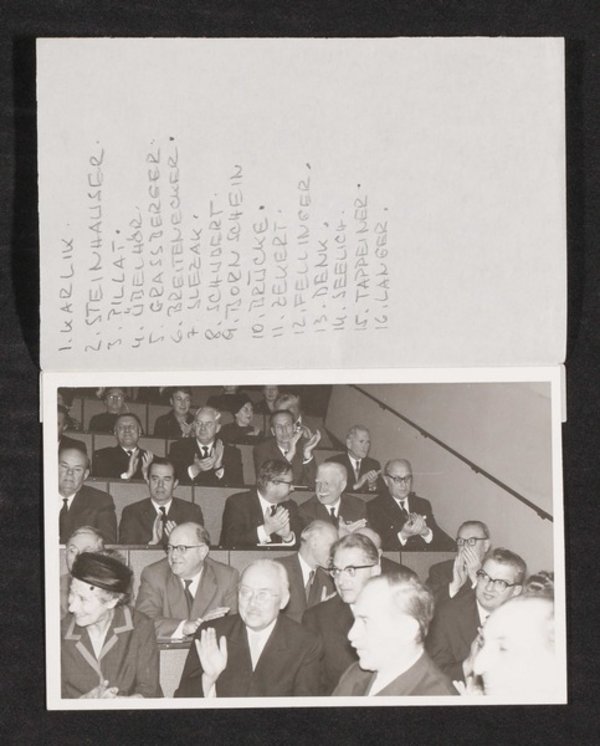 1. KARLIK.
2. STEINHAUSER.
3. PILLAT.
4. ÜBELHÖR.
5. GRASSBERGER.
6. BREITENECKER.
7. SLEZAK.
8. SCHUBERT.
9. BJORNSCHEIN
10. BRÜCKE.
11. ZEKERT.
12. FELLINGER.
13. DENK.
14. SEELICH.
15. TAPPEINER.
16. LANGER.